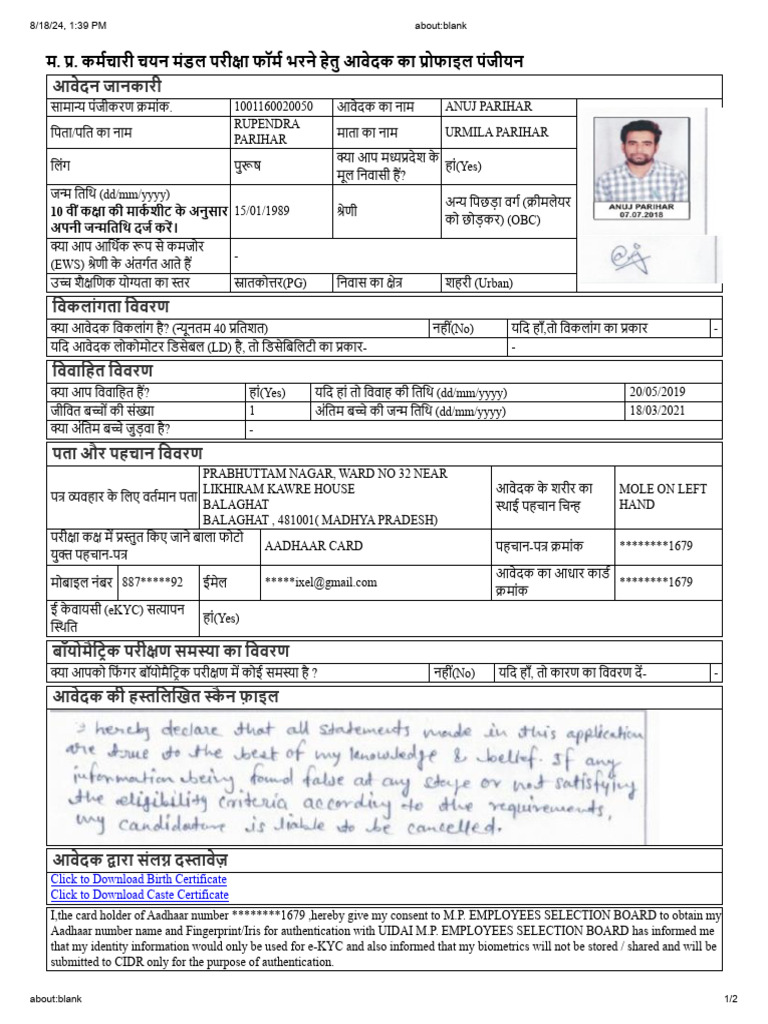 8/18/24, 1:39 PM about:blank
म. प्र. कर्मचारी चयन मंडल परीक्षा फॉर्म भरने हेतु आवेदक का प्रोफाइल पंजीयन
आवेदन जानकारी
सामान्य पंजीकरण क्रमांक. 1001160020050 आवेदक का नाम ANUJ PARIHAR
पिता/पति का नाम RUPENDRA PARIHAR माता का नाम URMILA PARIHAR
लिंग पुरूष क्या आप मध्यप्रदेश के मूल निवासी हैं? हां(Yes)
जन्म तिथि (dd/mm/yyyy)
10 वीं कक्षा की मार्कशीट के अनुसार अपनी जन्मतिथि दर्ज करें। 15/01/1989 श्रेणी अन्य पिछड़ा वर्ग (क्रीमलेयर को छोड़कर) (OBC)
ANUJ PARIHAR
07.07.2018
क्या आप आर्थिक रूप से कमजोर (EWS) श्रेणी के अंतर्गत आते हैं -
उच्च शैक्षणिक योग्यता का स्तर स्नातकोत्तर(PG) निवास का क्षेत्र शहरी (Urban)
विकलांगता विवरण
क्या आवेदक विकलांग है? (न्यूनतम 40 प्रतिशत) नहीं(No) यदि हाँ,तो विकलांग का प्रकार -
यदि आवेदक लोकोमोटर डिसेबल (LD) है, तो डिसेबिलिटी का प्रकार- -
विवाहित विवरण
क्या आप विवाहित हैं? हां(Yes) यदि हां तो विवाह की तिथि (dd/mm/yyyy) 20/05/2019
जीवित बच्चों की संख्या 1 अंतिम बच्चे की जन्म तिथि (dd/mm/yyyy) 18/03/2021
क्या अंतिम बच्चे जुड़वा है? -
पता और पहचान विवरण
पत्र व्यवहार के लिए वर्तमान पता PRABHUTTAM NAGAR, WARD NO 32 NEAR
LIKHIRAM KAWRE HOUSE
BALAGHAT
BALAGHAT , 481001( MADHYA PRADESH) आवेदक के शरीर का स्थाई पहचान चिन्ह MOLE ON LEFT HAND
परीक्षा कक्ष में प्रस्तुत किए जाने बाला फोटो युक्त पहचान-पत्र AADHAAR CARD पहचान-पत्र क्रमांक ********1679
मोबाइल नंबर 887*****92 ईमेल *****ixel@gmail.com आवेदक का आधार कार्ड क्रमांक ********1679
ई केवायसी (eKYC) सत्यापन स्थिति हां(Yes)
बॉयोमैट्रिक परीक्षण समस्या का विवरण
क्या आपको फिंगर बॉयोमैट्रिक परीक्षण में कोई समस्या है ? नहीं(No) यदि हाँ, तो कारण का विवरण दें- -
आवेदक की हस्तलिखित स्कैन फ़ाइल
I hereby declare that all statements made in this application
are true to the best of my knowledge & belief. If any
information being found false at any stage or not satisfying
the eligibility criteria according to the requirements,
my candidature is liable to be cancelled.
आवेदक द्वारा संलग्न दस्तावेज़
Click to Download Birth Certificate
Click to Download Caste Certificate
I,the card holder of Aadhaar number ********1679 ,hereby give my consent to M.P. EMPLOYEES SELECTION BOARD to obtain my
Aadhaar number name and Fingerprint/Iris for authentication with UIDAI M.P. EMPLOYEES SELECTION BOARD has informed me
that my identity information would only be used for e-KYC and also informed that my biometrics will not be stored / shared and will be
submitted to CIDR only for the purpose of authentication.
about:blank 1/2